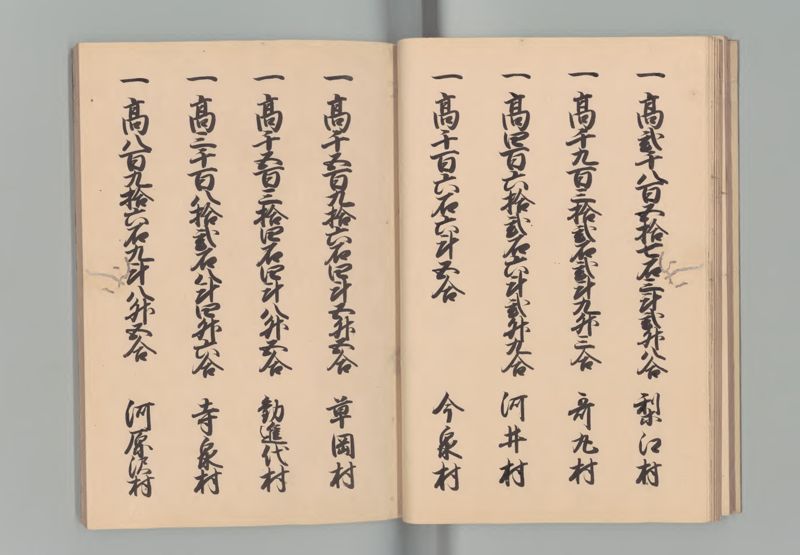 一 高弐千八百五拾七石三斗弐升八合 梨江村
一 高千九百三拾弐石弐斗九升三合 哥丸村
一 高四百六拾弐石六斗弐升九合 河井村
一 高千百六石六斗五合 今泉村
一 高千五百九拾六石四斗五升五合 草岡村
一 高千五百三拾四石四斗八升五合 勧進代村
一 高三千百八拾弐石八斗四升六合 寺泉村
一 高八百九拾六石九斗八升五合 河原沢村